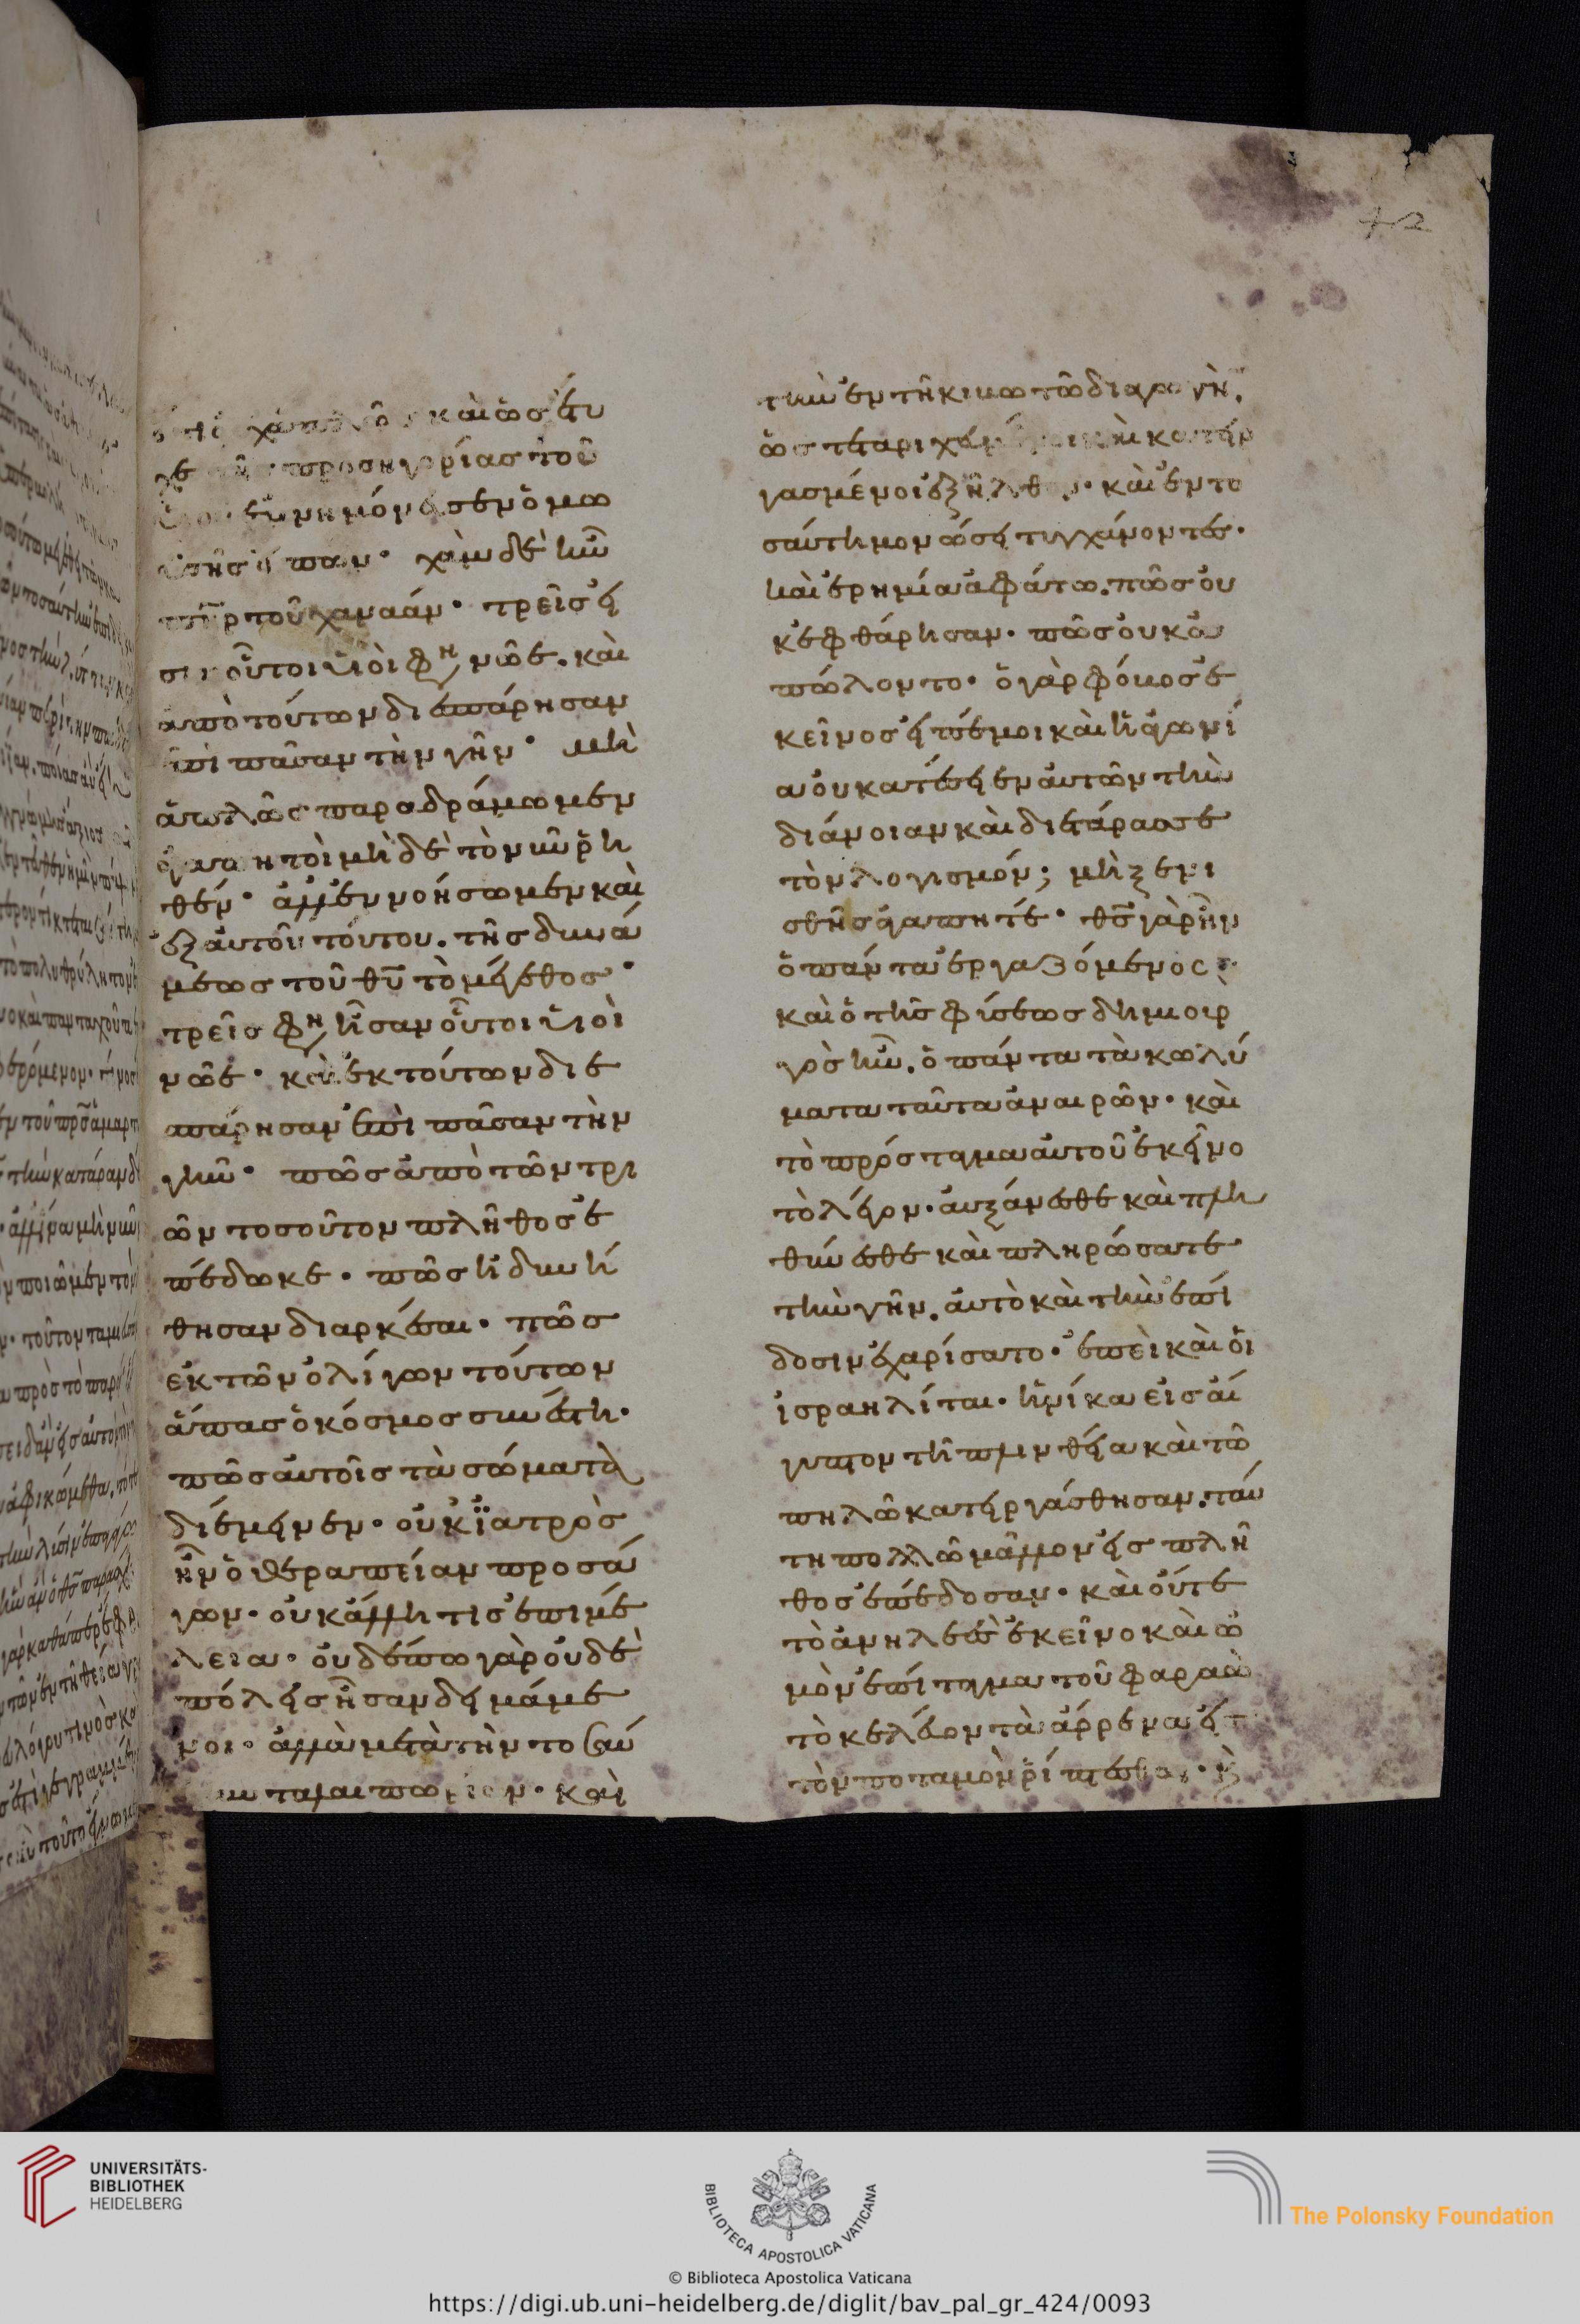 καὶ ὥσπερ
προσηγορίας τοῦ
ἐμνημόνευσεν ὁμω
χὰμ δὲ ἦν
π̅η̅ρ τοῦ χαναάν· τρεῖς εἰ
σιν οὗτοι υἱοὶ φη νῶε. καὶ
ἀπὸ τούτων διεσπάρησαν
ἐπὶ πᾶσαν τὴν γῆν· μὴ
ἁπλῶς παραδράμωμεν
ἀγαπητοὶ μὴ δὲ τὸ νῦν ῥη
θέν· ἀλλ' ἐννοήσωμεν καὶ
ἐξ αὐτοῦ τούτου. τῆς δυνά
μεως τοῦ θ̅υ̅ τὸ μέγεθος·
τρεῖς φη ἦσαν οὗτοι υἱοὶ
νῶε· καὶ ἐκ τούτων διε
σπάρησαν ἐπὶ πᾶσαν τὴν
γῆν· πῶς ἀπὸ τῶν τρι
ῶν τοσοῦτον πλῆθος ἐ
πέδωκε· πῶς ἠδυνή
θησαν διαρκέσαι· πῶς
ἐκ τῶν ὀλίγων τούτων
ἅπας ὁ κόσμος συνέστη·
πῶς αὐτοῖς τὰ σώματα
διέμεινεν· οὐκ ἰατρὸς
ἦν ὁ θεραπείαν προσά
γων· οὐκ ἄλλη τις ἐπιμέ
λεια· οὐδέπω γὰρ οὐδὲ
πόλεις ἦσαν δειμάμε
νοι· ἀλλὰ μετὰ τὴν τοσαύ
την ταλαιπωρίαν· καὶ
τὴν ἐν τῆ κιβωτῶ διαγωγὴν.
ὥς τεταριχευμένοι καὶ κατειρ
γασμένοι ἐξῆλθον· καὶ ἐν το
σαύτη μονώσει τυγχάνοντες·
καὶ ἐρημία ἀφάτω. πῶς οὐ
κ ἐφθάρησαν· πῶς οὐκ ἀ
πώλοντο· ὁ γὰρ φόβος ἐ
κεῖνος εἰπέ μοι καὶ ἡ ἀγωνί
α οὐ κατέσεισεν αὐτῶν τὴν
διάνοιαν καὶ διετάραξε
τὸν λογισμόν; μὴ ξενι
σθῆς ἀγαπητέ· θ̅ς̅ γὰρ ἦν
ὁ πάντα ἐργαζόμενος·
καὶ ὁ τῆς φύσεως δημιουρ
γὸς ἦν. ὁ πάντα τὰ κωλύ
ματα ταῦτα ἀναιρῶν· καὶ
τὸ πρόσταγμα αὐτοῦ ἐκεῖνο
τὸ λέγον· αὐξάνεσθε καὶ πλη
θύνεσθε καὶ πληρώσατε
τὴν γῆν. αὐτὸ καὶ τὴν ἐπί
δοσιν ἐχαρίσατο· ἐπεὶ καὶ οἱ
ἰσραηλίται· ἡνίκα εἰς αἴ
γυπτον τῆ πλινθεία καὶ τῶ
πηλῶ κατειργάσθησαν. ταύ
τη πολλῶ μᾶλλον εἰς πλῆ
θος ἐπέδοσαν· καὶ οὔτε
τὸ ἀνηλεὲς ἐκεῖνο καὶ ὠ
μὸν ἐπίταγμα τοῦ φαραὼ
τὸ κελεῦον τὰ ἄρρενα εἰς
τὸν ποταμὸν ῥίπτεσθαι·
UNIVERSITÄTS-
BIBLIOTHEK
HEIDELBERG
BIBLIOTECA APOSTOLICA VATICANA
The Polonsky Foundation
© Biblioteca Apostolica Vaticana
https://digi.ub.uni-heidelberg.de/diglit/bav_pal_gr_424/0093